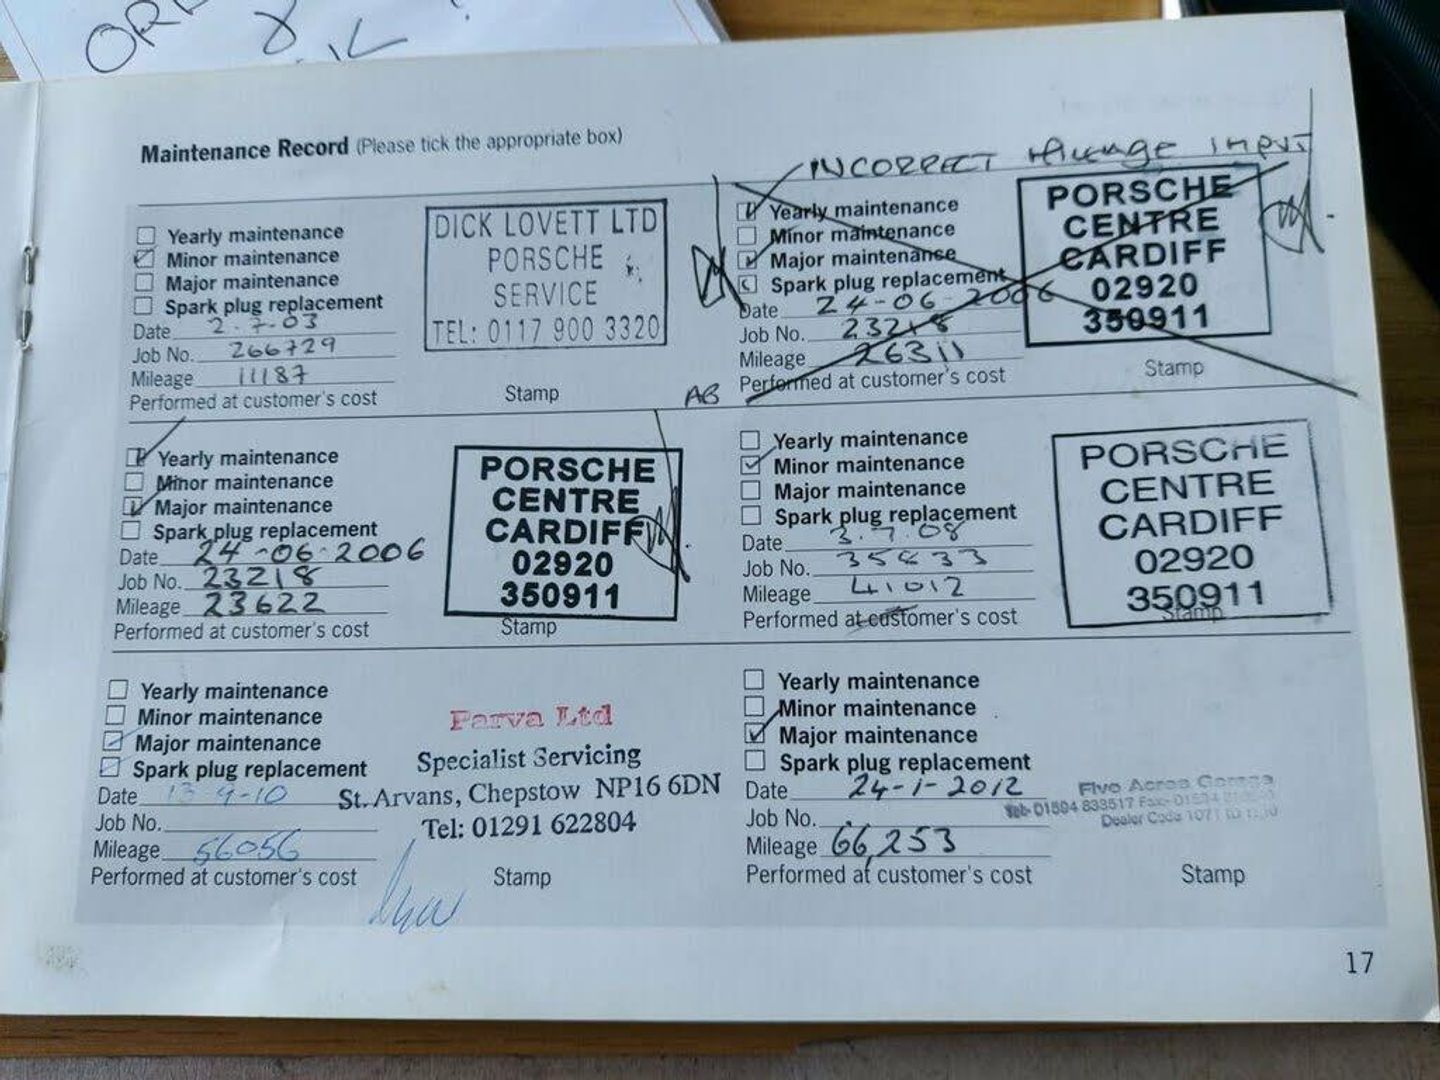 ORR
Maintenance Record (Please tick the appropriate box)
INCORRECT Mileage INPUT
Yearly maintenance
Minor maintenance
Major maintenance
Spark plug replacement
Date 2.7.03
Job No. 266729
Mileage 11187
Performed at customer's cost
DICK LOVETT LTD
PORSCHE
SERVICE
TEL: 0117 900 3320
Stamp
Yearly maintenance
Minor maintenance
Major maintenance
Spark plug replacement
Date 24-06-2006
Job No. 23218
Mileage 26311
Performed at customer's cost
PORSCHE
CENTRE
CARDIFF
02920
350911
Stamp
AB
Yearly maintenance
Minor maintenance
Major maintenance
Spark plug replacement
Date 24-06-2006
Job No. 23218
Mileage 23622
Performed at customer's cost
PORSCHE
CENTRE
CARDIFF
02920
350911
Stamp
Yearly maintenance
Minor maintenance
Major maintenance
Spark plug replacement
Date 3.7.08
Job No. 35833
Mileage 41012
Performed at customer's cost
PORSCHE
CENTRE
CARDIFF
02920
350911
Stamp
Yearly maintenance
Minor maintenance
Major maintenance
Spark plug replacement
Date 13-9-10
Job No.
Mileage 56056
Performed at customer's cost
Parva Ltd
Specialist Servicing
St. Arvans, Chepstow NP16 6DN
Tel: 01291 622804
Stamp
Yearly maintenance
Minor maintenance
Major maintenance
Spark plug replacement
Date 24-1-2012
Job No.
Mileage 66,253
Performed at customer's cost
Five Acres Garage
Tel: 01594 833517 Fax: 01594
Dealer Code 1071
Stamp
17